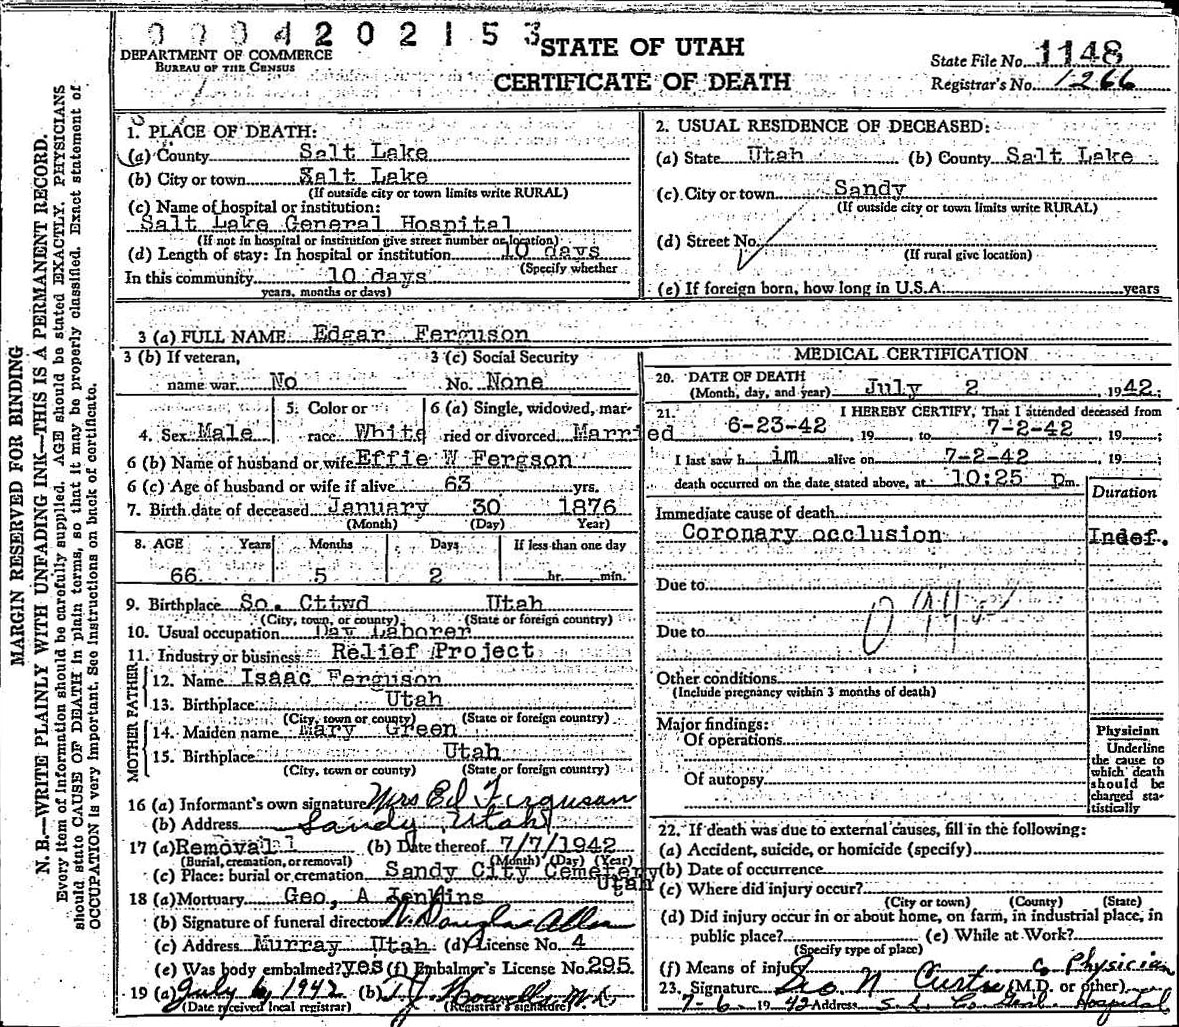 0004202153
DEPARTMENT OF COMMERCE
BUREAU OF THE CENSUS
STATE OF UTAH
CERTIFICATE OF DEATH
State File No. 1148
Registrar's No. 1266
MARGIN RESERVED FOR BINDING
N. B.—WRITE PLAINLY WITH UNFADING INK—THIS IS A PERMANENT RECORD.
Every item of information should be carefully supplied. AGE should be stated EXACTLY. PHYSICIANS
should state CAUSE OF DEATH in plain terms, so that it may be properly classified. Exact statement of
OCCUPATION is very important. See instructions on back of certificate.
1. PLACE OF DEATH:
(a) County Salt Lake
(b) City or town Salt Lake
(If outside city or town limits write RURAL)
(c) Name of hospital or institution:
Salt Lake General Hospital
(If not in hospital or institution give street number or location)
(d) Length of stay: In hospital or institution 10 days
(Specify whether
In this community 10 days
years, months or days)
2. USUAL RESIDENCE OF DECEASED:
(a) State Utah (b) County Salt Lake
(c) City or town Sandy
(If outside city or town limits write RURAL)
(d) Street No.
(If rural give location)
(e) If foreign born, how long in U.S.A. years
3 (a) FULL NAME Edgar Ferguson
3 (b) If veteran, 3 (c) Social Security
name war No No. None
5. Color or 6 (a) Single, widowed, mar-
4. Sex Male race White ried or divorced Married
6 (b) Name of husband or wife Effie W Fergson
6 (c) Age of husband or wife if alive 63 yrs.
7. Birth date of deceased January 30 1876
(Month) (Day) Year)
8. AGE Years Months Days If less than one day
66 5 2 hr. min.
9. Birthplace So. Cttwd Utah
(City, town, or county) (State or foreign country)
10. Usual occupation Day Laborer
11. Industry or business Relief Project
FATHER
12. Name Isaac Ferguson
13. Birthplace Utah
(City, town or county) (State or foreign country)
MOTHER
14. Maiden name Mary Green
15. Birthplace Utah
(City, town or county) (State or foreign country)
16 (a) Informant's own signature Mrs Ed Ferguson
(b) Address Sandy Utah
17 (a) Removal (b) Date thereof 7/7/1942
(Burial, cremation, or removal) (Month) (Day) (Year)
(c) Place: burial or cremation Sandy City Cemetery
Utah
18 (a) Mortuary Geo, A Jenkins
(b) Signature of funeral director
(c) Address Murray Utah (d) License No. 4
(e) Was body embalmed? yes (f) Embalmer's License No. 295
19 (a) July 6, 1942 (b)
(Date received local registrar) (Registrar's signature)
MEDICAL CERTIFICATION
20. DATE OF DEATH
(Month, day, and year) July 2 1942;
21. I HEREBY CERTIFY, That I attended deceased from
6-23-42, 19 to 7-2-42, 19;
I last saw him alive on 7-2-42, 19;
death occurred on the date stated above, at 10:25 pm.
Duration
Immediate cause of death
Coronary occlusion Indef.
Due to
Due to
Other conditions
(Include pregnancy within 3 months of death)
Major findings:
Of operations
Of autopsy
Physician
Underline
the cause to
which death
should be
charged sta-
tistically
22. If death was due to external causes, fill in the following:
(a) Accident, suicide, or homicide (specify)
(b) Date of occurrence
(c) Where did injury occur?
(City or town) (County) (State)
(d) Did injury occur in or about home, on farm, in industrial place, in
public place? (e) While at Work?
(Specify type of place)
(f) Means of injury
Co Physician
23. Signature Geo N Curtis (M.D. or other)
7-6-1942 Address S. L. Co Genl. Hospital